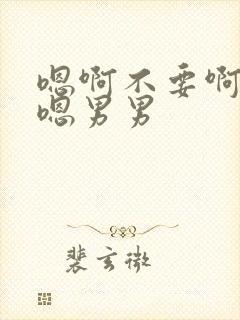 嗯啊不要啊
嗯男男
裴玄微